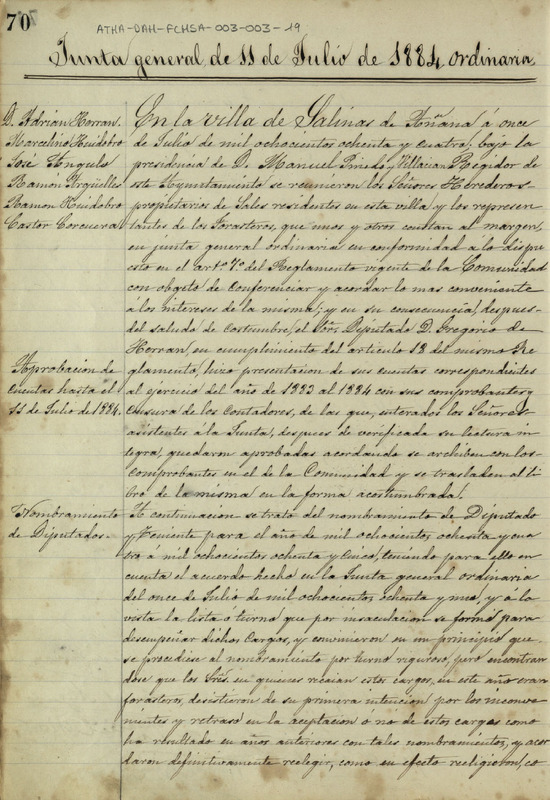 70
ATHA-DAH-FCHSA-003-003-19
Junta general de 11 de Julio de 1884 ordinaria
D. Adrian Herran.
Marcelino Huidobro
José Angulo
Ramon Argüelles
Ramon Huidobro
Castor Corcuera
En la villa de Salinas de Añana á once
de Julio de mil ochocientos ochenta y cuatro; bajo la
presidencia de D. Manuel Pinedo y Villacian Regidor de
este Ayuntamiento se reunieron los Señores Herederos
propietarios de Sales residentes en esta villa y los represen
tantes de los forasteros, que unos y otros constan al margen,
en junta general ordinaria en conformidad á lo dispu
esto en el artº 7º del Reglamento vigente de la Comunidad
con obgeto de Conferenciar y acordar lo mas conveniente
á los intereses de la misma; y en su consecuencia, despues
del saludo de Costumbre, el Sr. Diputado D. Gregorio de
Herran, en cumplimiento del articulo 13 del mismo Re
glamento, hizo presentacion de sus cuentas correspondientes
al ejercicio del año de 1883 al 1884 con sus comprobantes y
Censura de los Contadores, de las que, enterados los Señores
asistentes á la Junta, despues de verificada su lectura in
tegra, quedaron aprobadas acordando se archiben con los
Comprobantes en el de la Comunidad y se trasladen al li
bro de la misma en la forma acostumbrada.
Aprobacion de
Cuentas hasta el
11 de Julio de 1884.
Nombramiento
de Diputados.
A continuacion se trató del nombramiento de Diputado
y Teniente para el año de mil ochocientos ochenta y cua
tro á mil ochocientos ochenta y Cinco, teniendo para ello en
cuenta el acuerdo hecho en la Junta general ordinaria
del once de Julio de mil ochocientos ochenta y uno, y á la
vista la lista ó turno que por insaculacion se formó para
desempeñar dichos Cargos, y convinieron en un principio que
se procediese al nombramiento por turno riguroso, pero encontran
dose que los Sres. en quienes recaian estos cargos, en este año eran
forasteros, desistieron de su primera intencion por los inconve
nientes y retraso en la aceptacion ó no de estos cargos como
ha resultado en años anteriores con tales nombramientos, y acor
daron definitivamente reelegir, como en efecto reeligieron, co